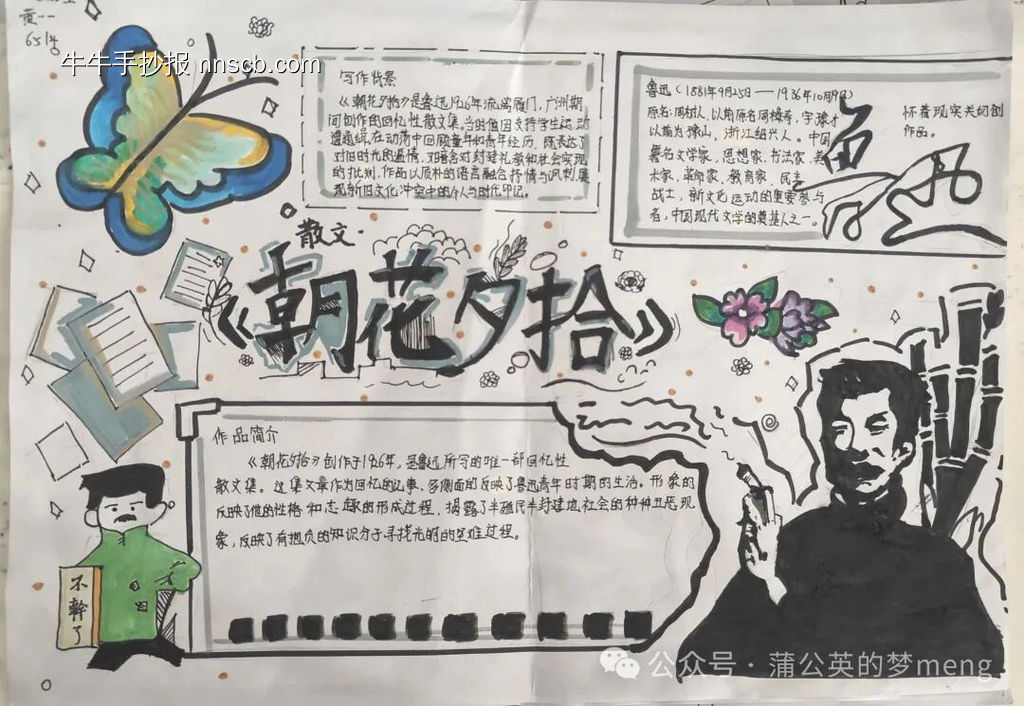 黄一一
牛牛手抄报 nnscb.com
写作背景
《朝花夕拾》是鲁迅1926年流离厦门、广州期
间创作的回忆性散文集。当时他因支持学生运动
遭通缉，在动荡中回顾童年和青年经历，既表达了
对旧时光的温情，又暗含对封建礼教和社会实现
的批判，作品以质朴的语言融合抒情与讽刺，展
现新旧文化冲突中的个人与时代印记。
鲁迅（1881年9月25日——1936年10月19日）
原名：周树人，以前原名周樟寿，字豫才
以前为豫山，浙江绍兴人。中国
著名文学家、思想家、书法家、美
术家、革命家、教育家、民主
战士，新文化运动的重要参与
者，中国现代文学的奠基人之一。
怀着现实关切创
作品。
鲁迅
散文·
《朝花夕拾》
作品简介
《朝花夕拾》创作于1926年，是鲁迅所写的唯一部回忆性
散文集。这集文章作为回忆的记事，多侧面的反映了鲁迅青年时期的生活。形象的
反映了他的性格和志趣的形成过程，揭露了半殖民半封建社会的种种丑恶现
象，反映了有抱负的知识分子寻找光明的艰难过程。
不幹了
公众号·蒲公英的梦meng